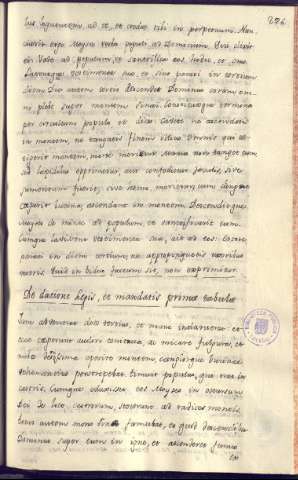 276
tus loquentem, ad te, et credas tibi in perpetuum. Nun-
ciavit ergo Moyses verba populi ad Dominum. Qui dixit
ei: Vade ad populum, et sanctifica eos hodie, et cras
Laventque vestimenta sua, et sint parati in tertium
diem. Die autem tertio descendet Dominus coram om-
ni plebe super montem Sinai. Constituesque terminos
per circuitum populo et dices: Cavete ne ascendatis
in montem, ne tangatis fines illius. Omnis qui te-
tigerit montem, morte morietur. manus non tanget eum
sed lapidibus opprimetur, aut confodietur jaculis, sive
jumentum fuerit, sive homo, non vivet, cum
caeperit buccina, ascendant in montem. Descenditque
Moyses de monte ad populum, et sanctificavit eum.
Cumque lavissent vestimenta sua, ait ad eos: Estote
parati in diem tertium, ne appropinquetis uxoribus
vestris. Quid in
De datione Legis, et mandatis primae tabulae
Jam advenerat dies tertius, et mane inclaruerat et
ecce caeperunt audiri tonitrua, ac micare fulgura, et
nubes densissima operire montem, clangorque buccinae
vehementius perstrepebat: timuit populus, qui erat in
castris. Cumque eduxisset eos Moyses in occursum
Dei de loco castrorum, steterunt ad radices montis.
Totus autem mons Sinai fumabat, eo quod descendisset
Dominus super eum in igne, et ascenderet fumus